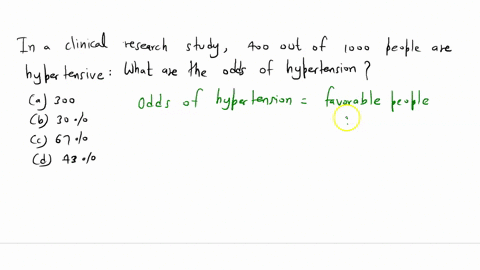 In a clinical research study, 400 out of 1000 people are
hypertensive: What are the odds of hypertension?
(a) 300
(b) 30%
(c) 67%
(d) 43%
Odds of hypertension = favorable people